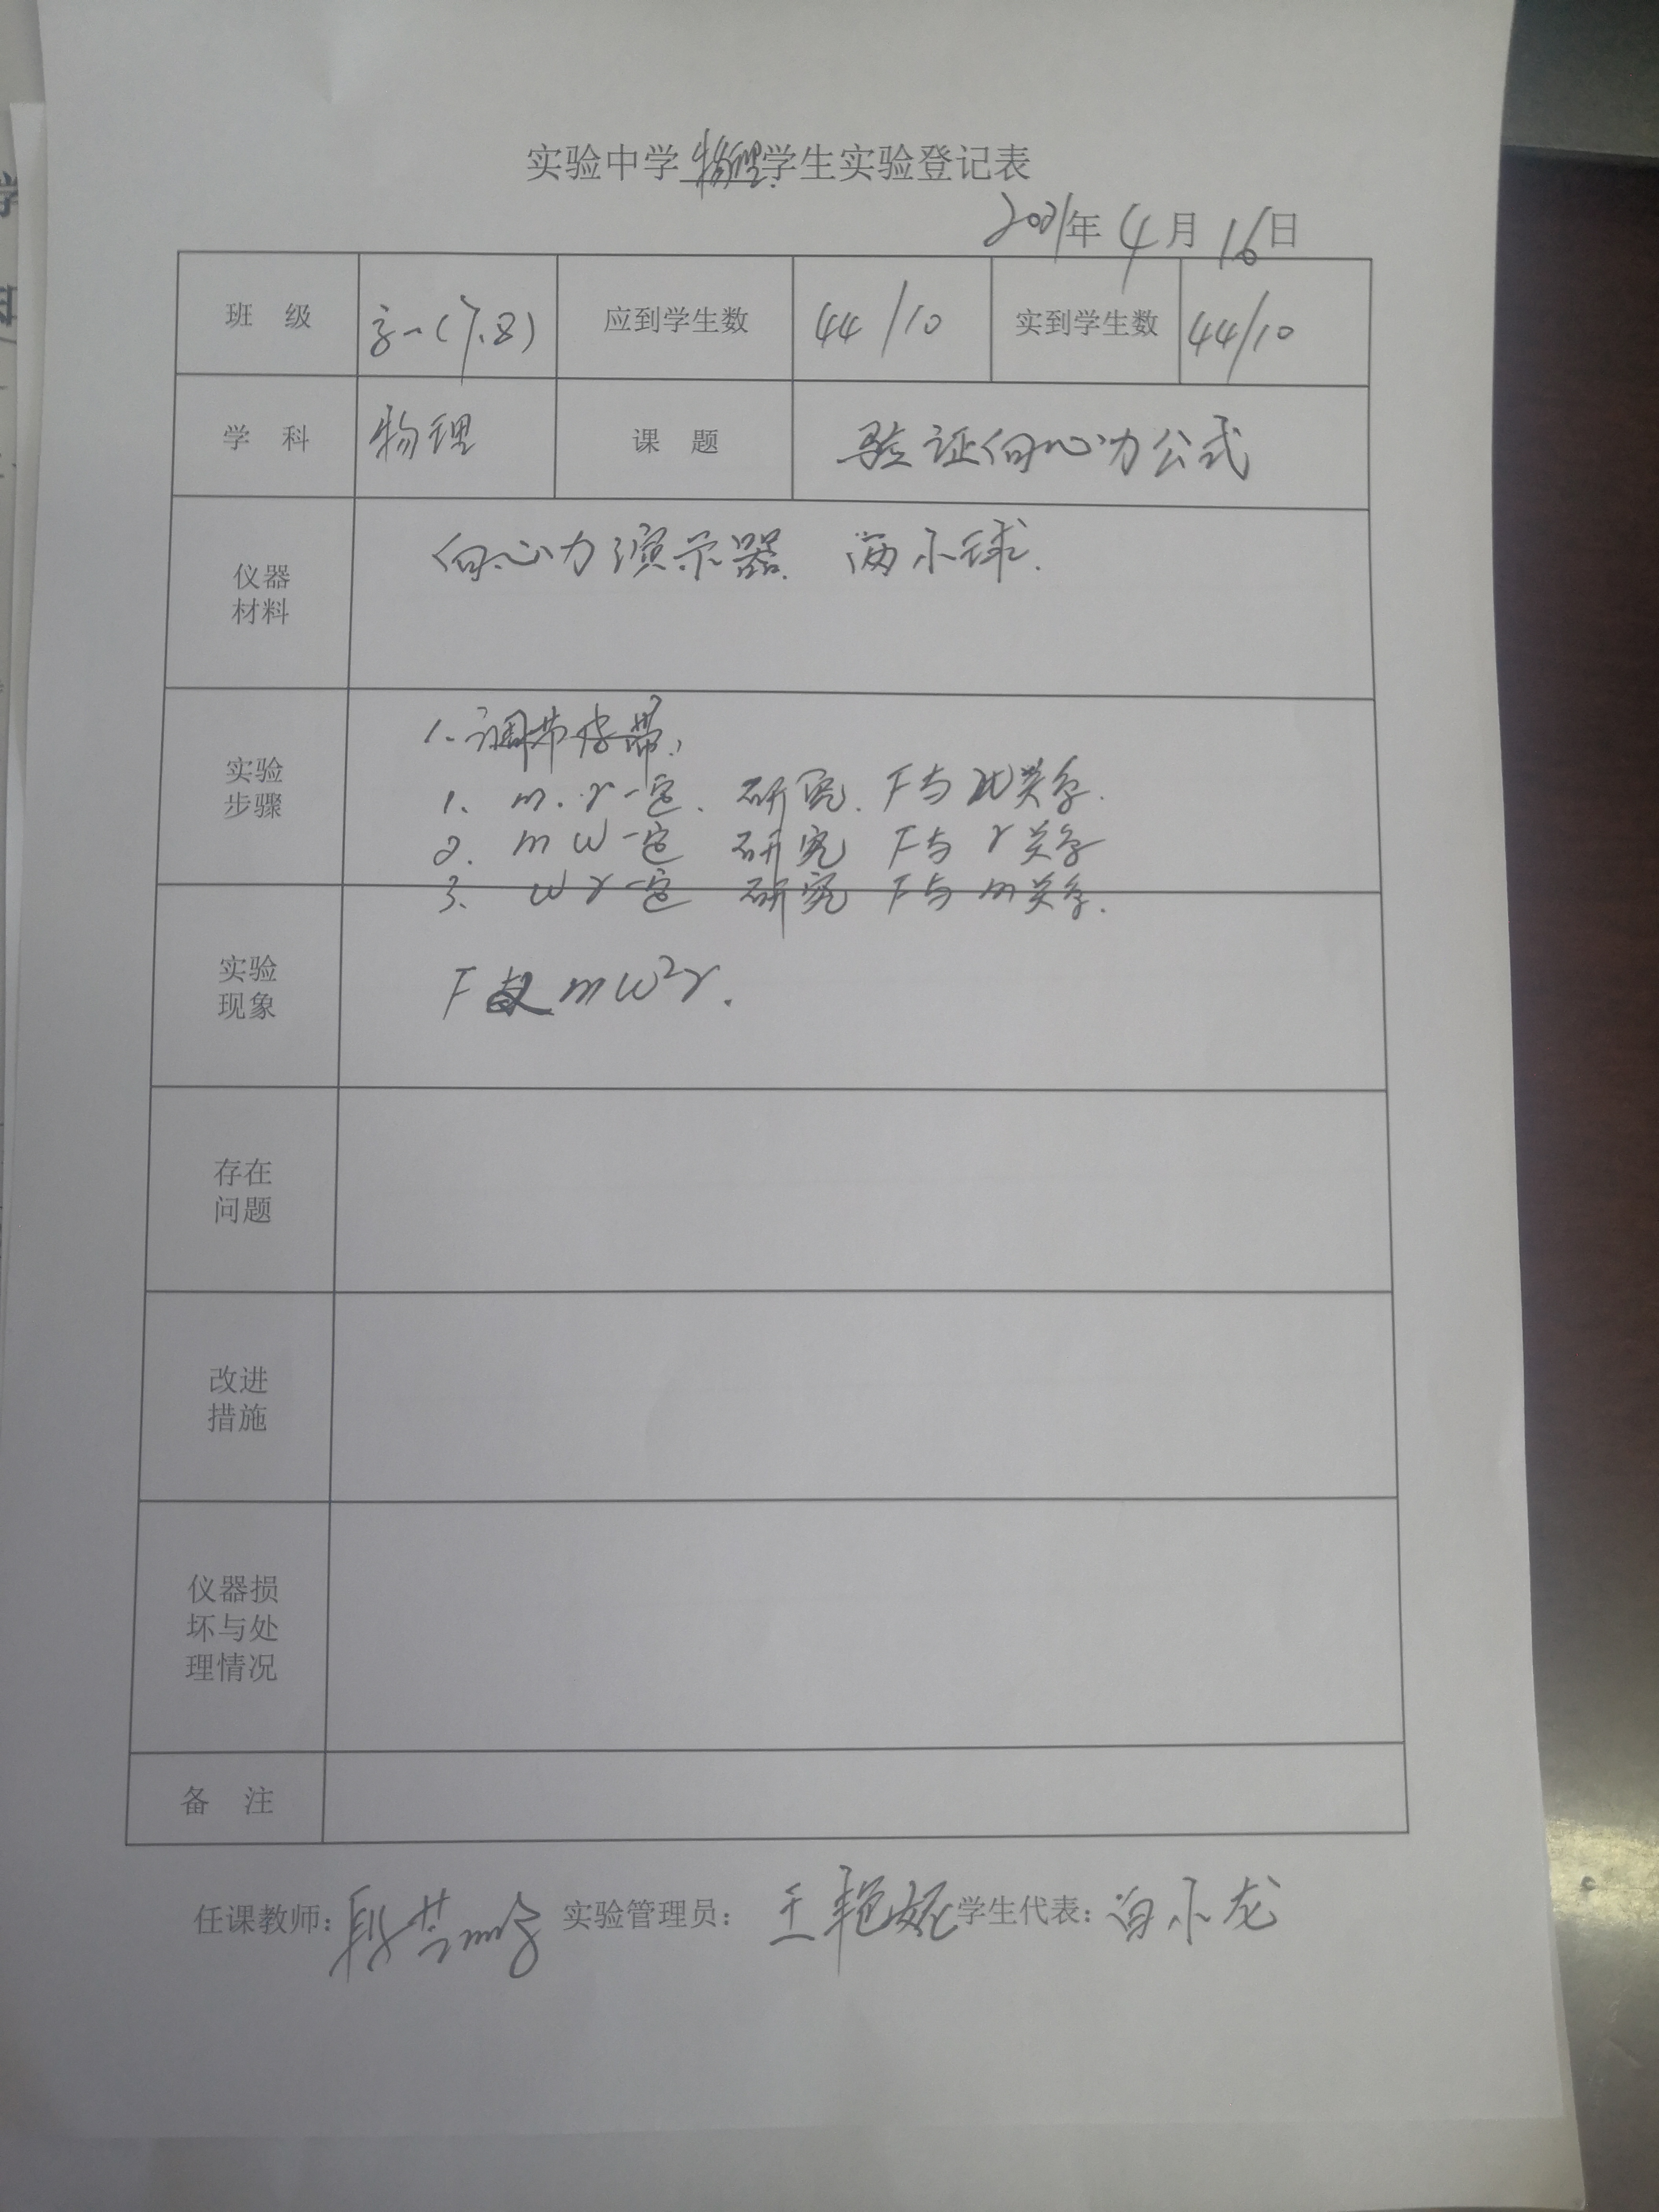 实验中学物理学生实验登记表
2021年4月16日
班 级 高一(7.8) 应到学生数 44/10 实到学生数 44/10
学 科 物理 课 题 验证向心力公式
仪器
材料
向心力演示器. 两小球.
实验
步骤
1、调节仪器.
1、m.r一定、研究.F与W关系.
2. m W一定 研究 F与r关系
3、W r一定 研究 F与m关系.
实验
现象
F mW²r.
存在
问题
改进
措施
仪器损
坏与处
理情况
备 注
任课教师: 实验管理员: 王艳妮 学生代表: 白小龙